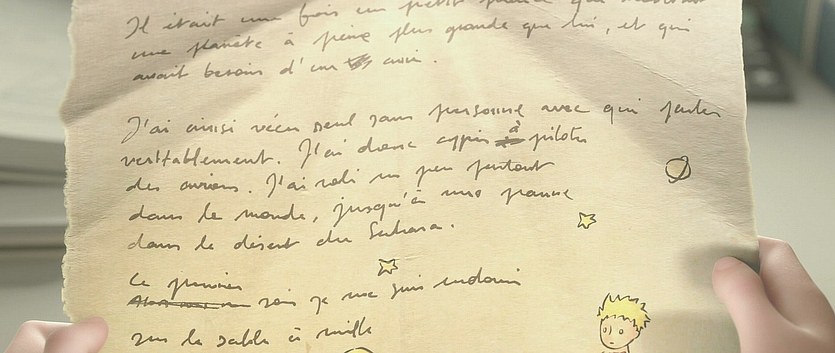 Il était une fois un petit prince qui habitait
une planète à peine plus grande que lui, et qui
avait besoin d'un ami.
J'ai ainsi vécu seul sans personne avec qui parler
véritablement. J'ai donc appris à piloter
des avions. J'ai volé un peu partout
dans le monde, jusqu'à une panne
dans le désert du Sahara.
Ce premier
soir je me suis endormi
sur le sable à mille